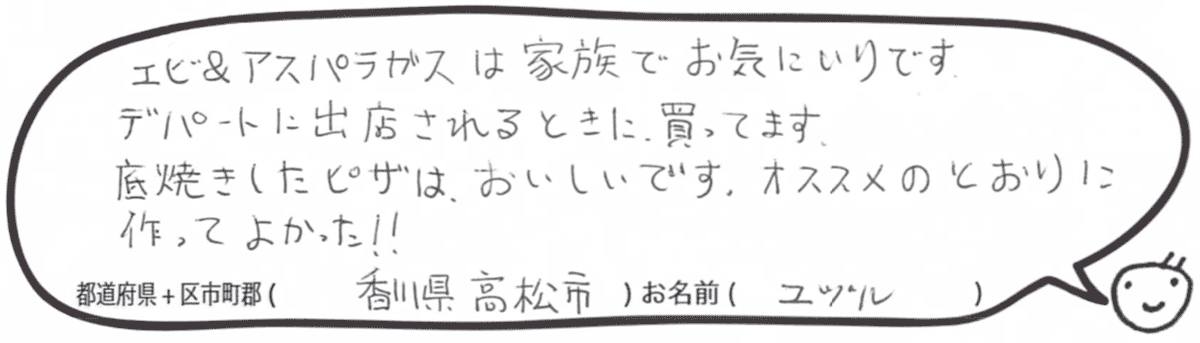 エビ&アスパラガスは家族でお気にいりです.
デパートに出店されるときに、買ってます.
底焼きしたピザは、おいしいです。オススメのとおりに
作ってよかった!!
都道府県+区市町郡( 香川県 高松市 )お名前( ユヅル )